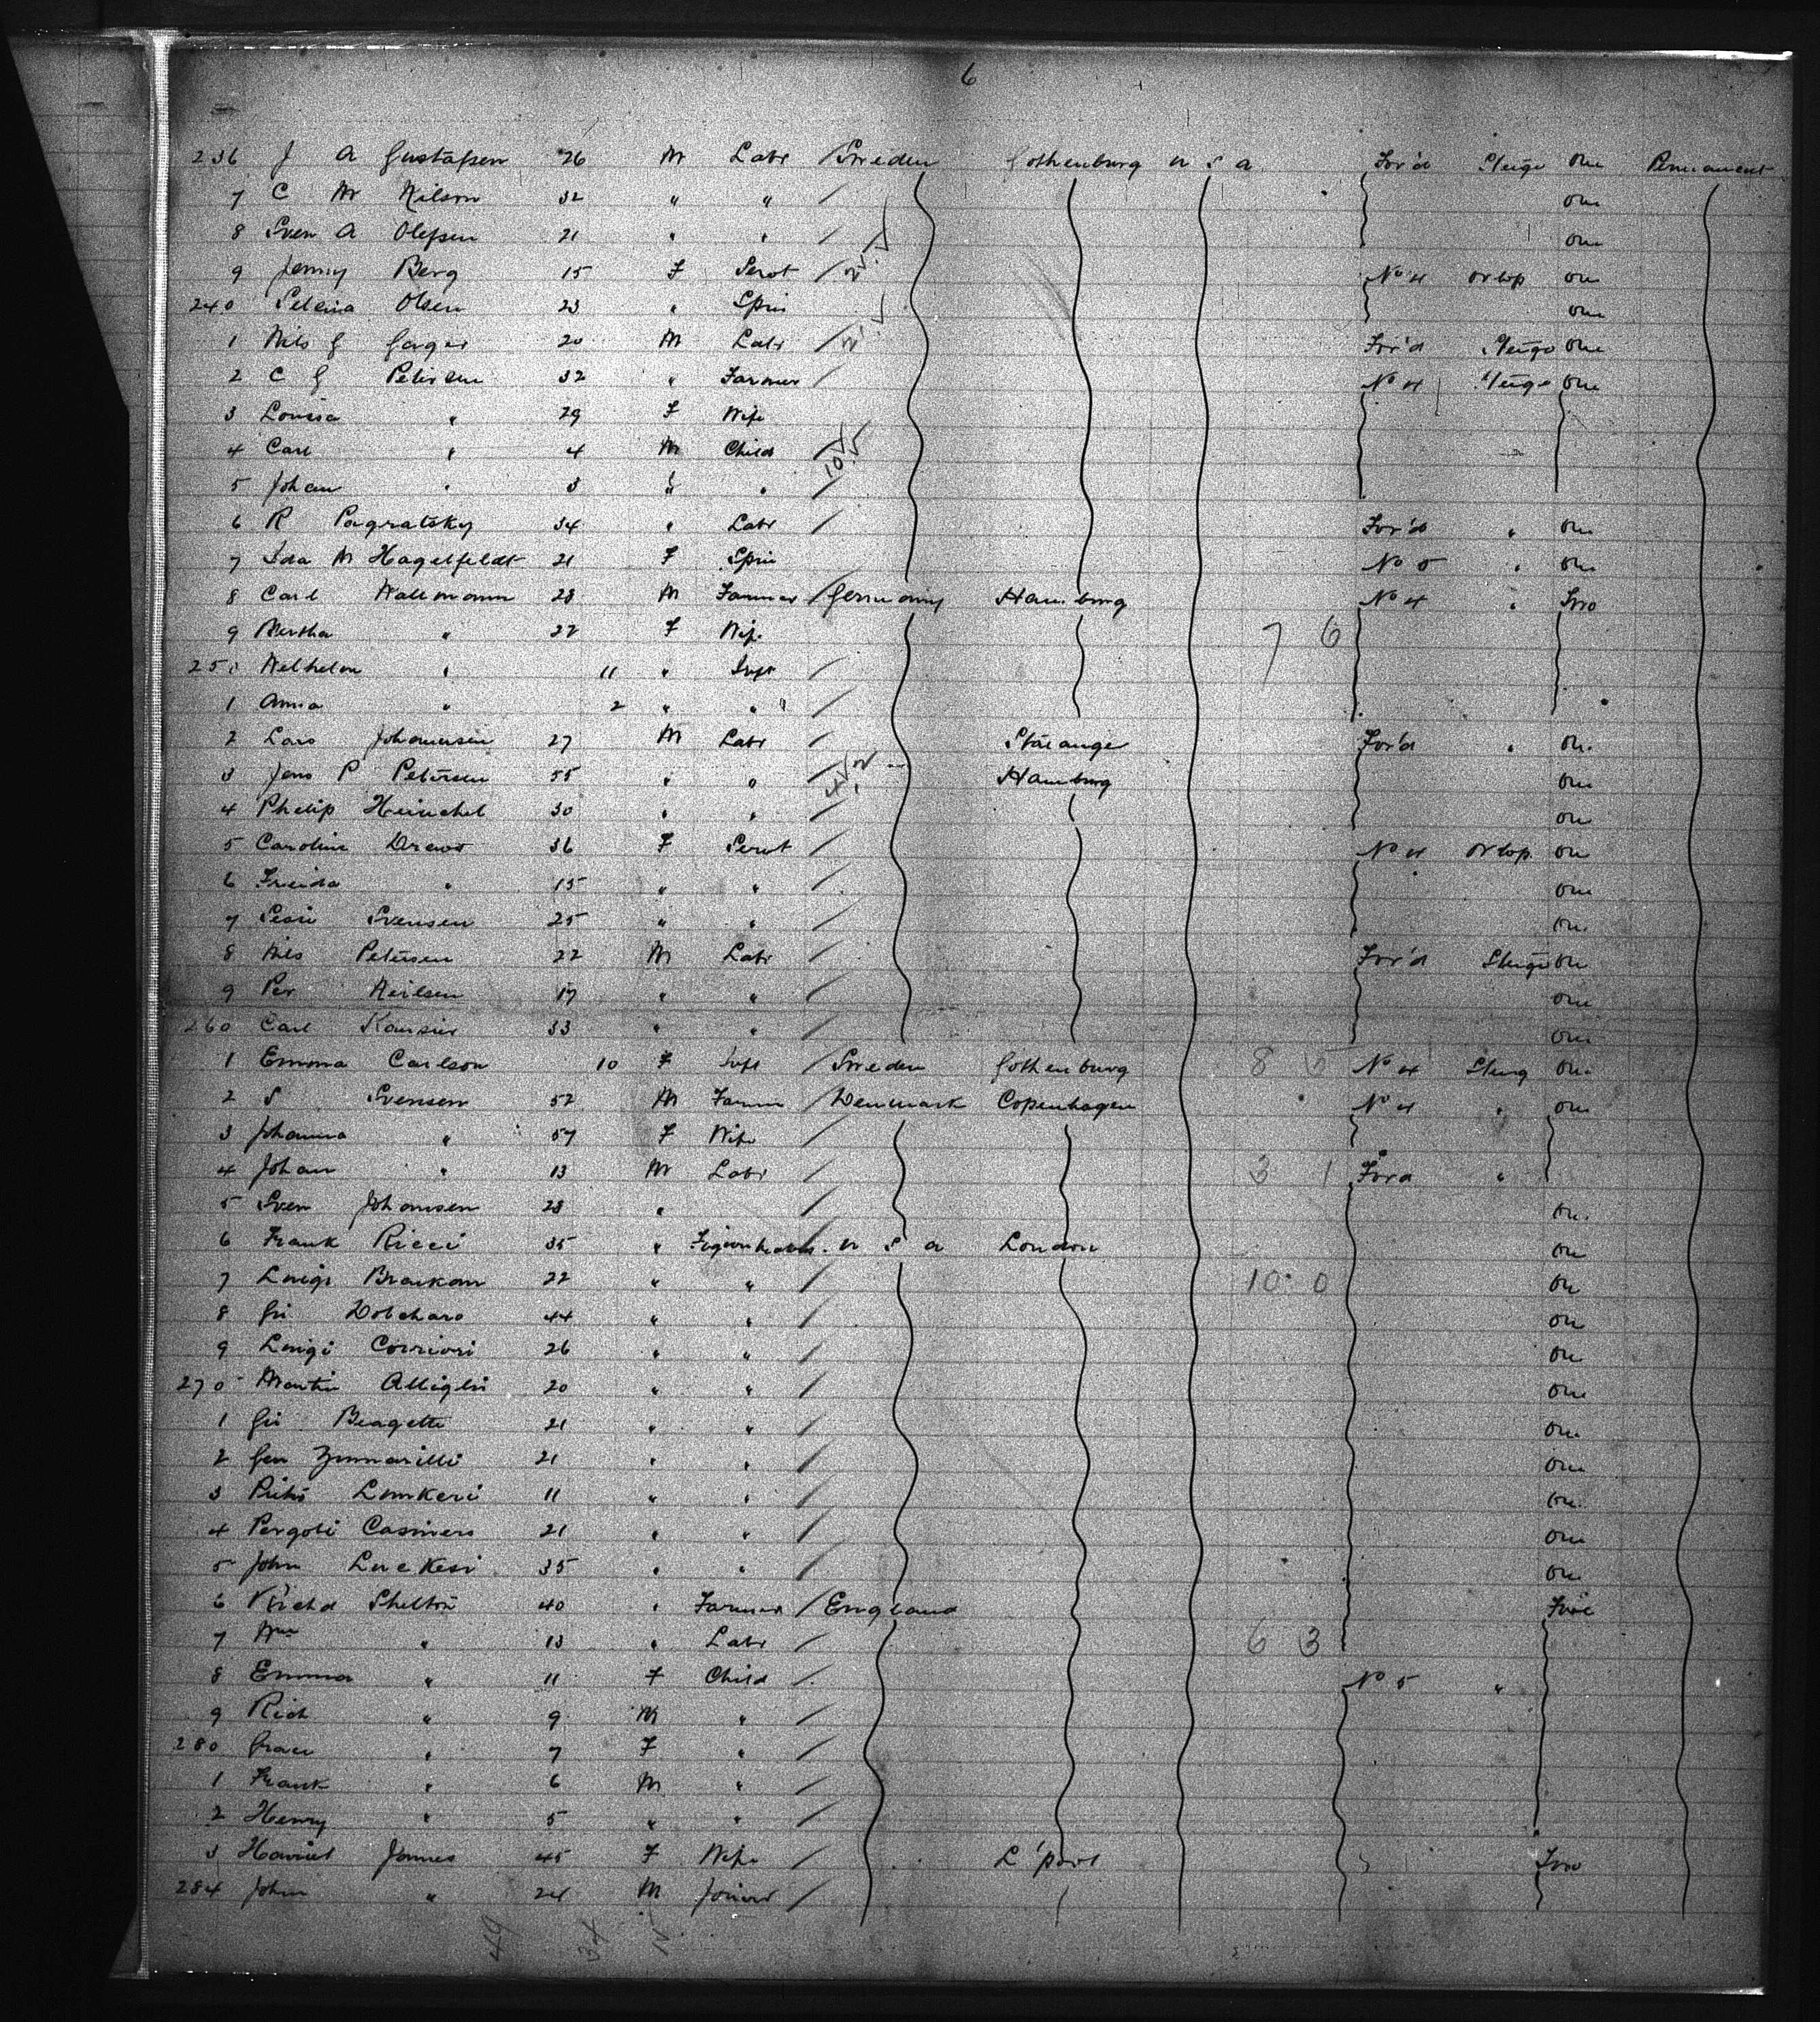 6
236 J A Gustafsen 26 M Labr / Sweden Gothenburg U S A For'd Steuge One Permanent
7 C M Nilson 32 " " / One
8 Sven A Olefsen 21 " " / One
9 Jenny Berg 15 F Servt / No 4 Orlop One
240 Olsen 23 " Spin One
1 Nils G 20 M Labr / For'd Steuge One
2 C G Petersen 32 " Farmer / No 4 Steuge One
3 Louisa " 29 F Wife
4 Carl " 4 M Child /
5 Johan " 3 " " /
6 R Pagratsky 34 " Labr / For'd " One
7 Ida M Hagelfeldt 21 F Spin No 5 " One
8 Carl Wallmann 28 M Farmer / Germany Hamburg No 4 " Two
9 Bertha " 22 F Wife 7 6
250 Welhelm " 11 " Inft /
1 Anna " 2 " " /
2 Lars Johannsen 27 M Labr / Stavanger For'd " One
3 Jens P Petersen 55 " " / Hamburg One
4 Phelip Heinchel 30 " " / One
5 Caroline Drews 36 F Servt / No 4 Orlop One
6 Freida " 15 " " / One
7 Svensen 25 " " / One
8 Nils Petersen 22 M Labr / For'd Steuge One
9 Per Neilsen 17 " " / One
260 Carl 33 " " / One
1 Emma Carlson 10 F Inft / Sweden Gothenburg 8 5 No 4 Steug One
2 S Svensen 52 M Farmr / Denmark Copenhagen No 4 " One
3 Johanna " 57 F Wife /
4 Johan " 13 M Labr / 3 1 Ford "
5 Sven Johansen 28 " / One
6 Frank Ricci 35 " U S A London One
7 Luigi 22 " " / 10 0 One
8 Gu 44 " " / One
9 Luigi Corriori 26 " " / One
270 Martin Alliglri 20 " " / One
1 Gu Beagette 21 " " / One
2 Gen Zumarilli 21 " " / One
3 Lumkeri 11 " " / One
4 Pergoli Casimero 21 " " / One
5 John Luckesi 35 " " / One
6 Richd Shelton 40 " Farmer / England Five
7 Wm " 13 " Labr / 6 3
8 Emma " 11 F Child / No 5 "
9 Rich " 9 M " /
280 Grace " 7 F " /
1 Frank " 6 M " /
2 Henry " 5 " " /
3 Harriet James 45 F Wife / L'pool Two
284 John " 24 M Joiner /
49 34 15